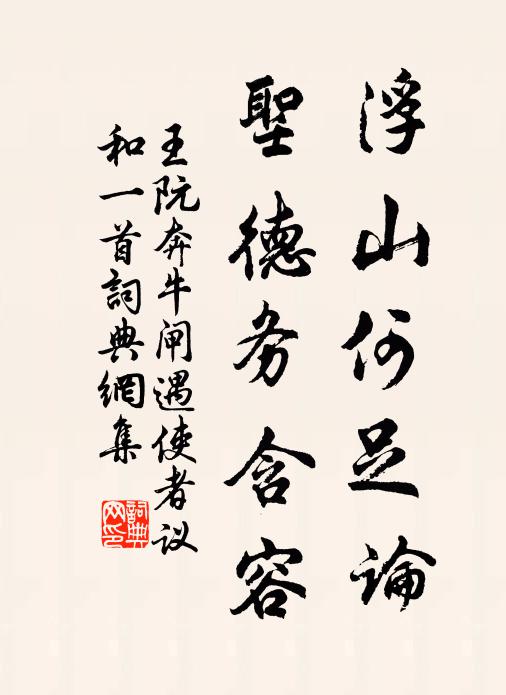 浮山何足論
聖德务含容
王阮奔牛闸遇使者议
和一首詞典網集
詞典
网印